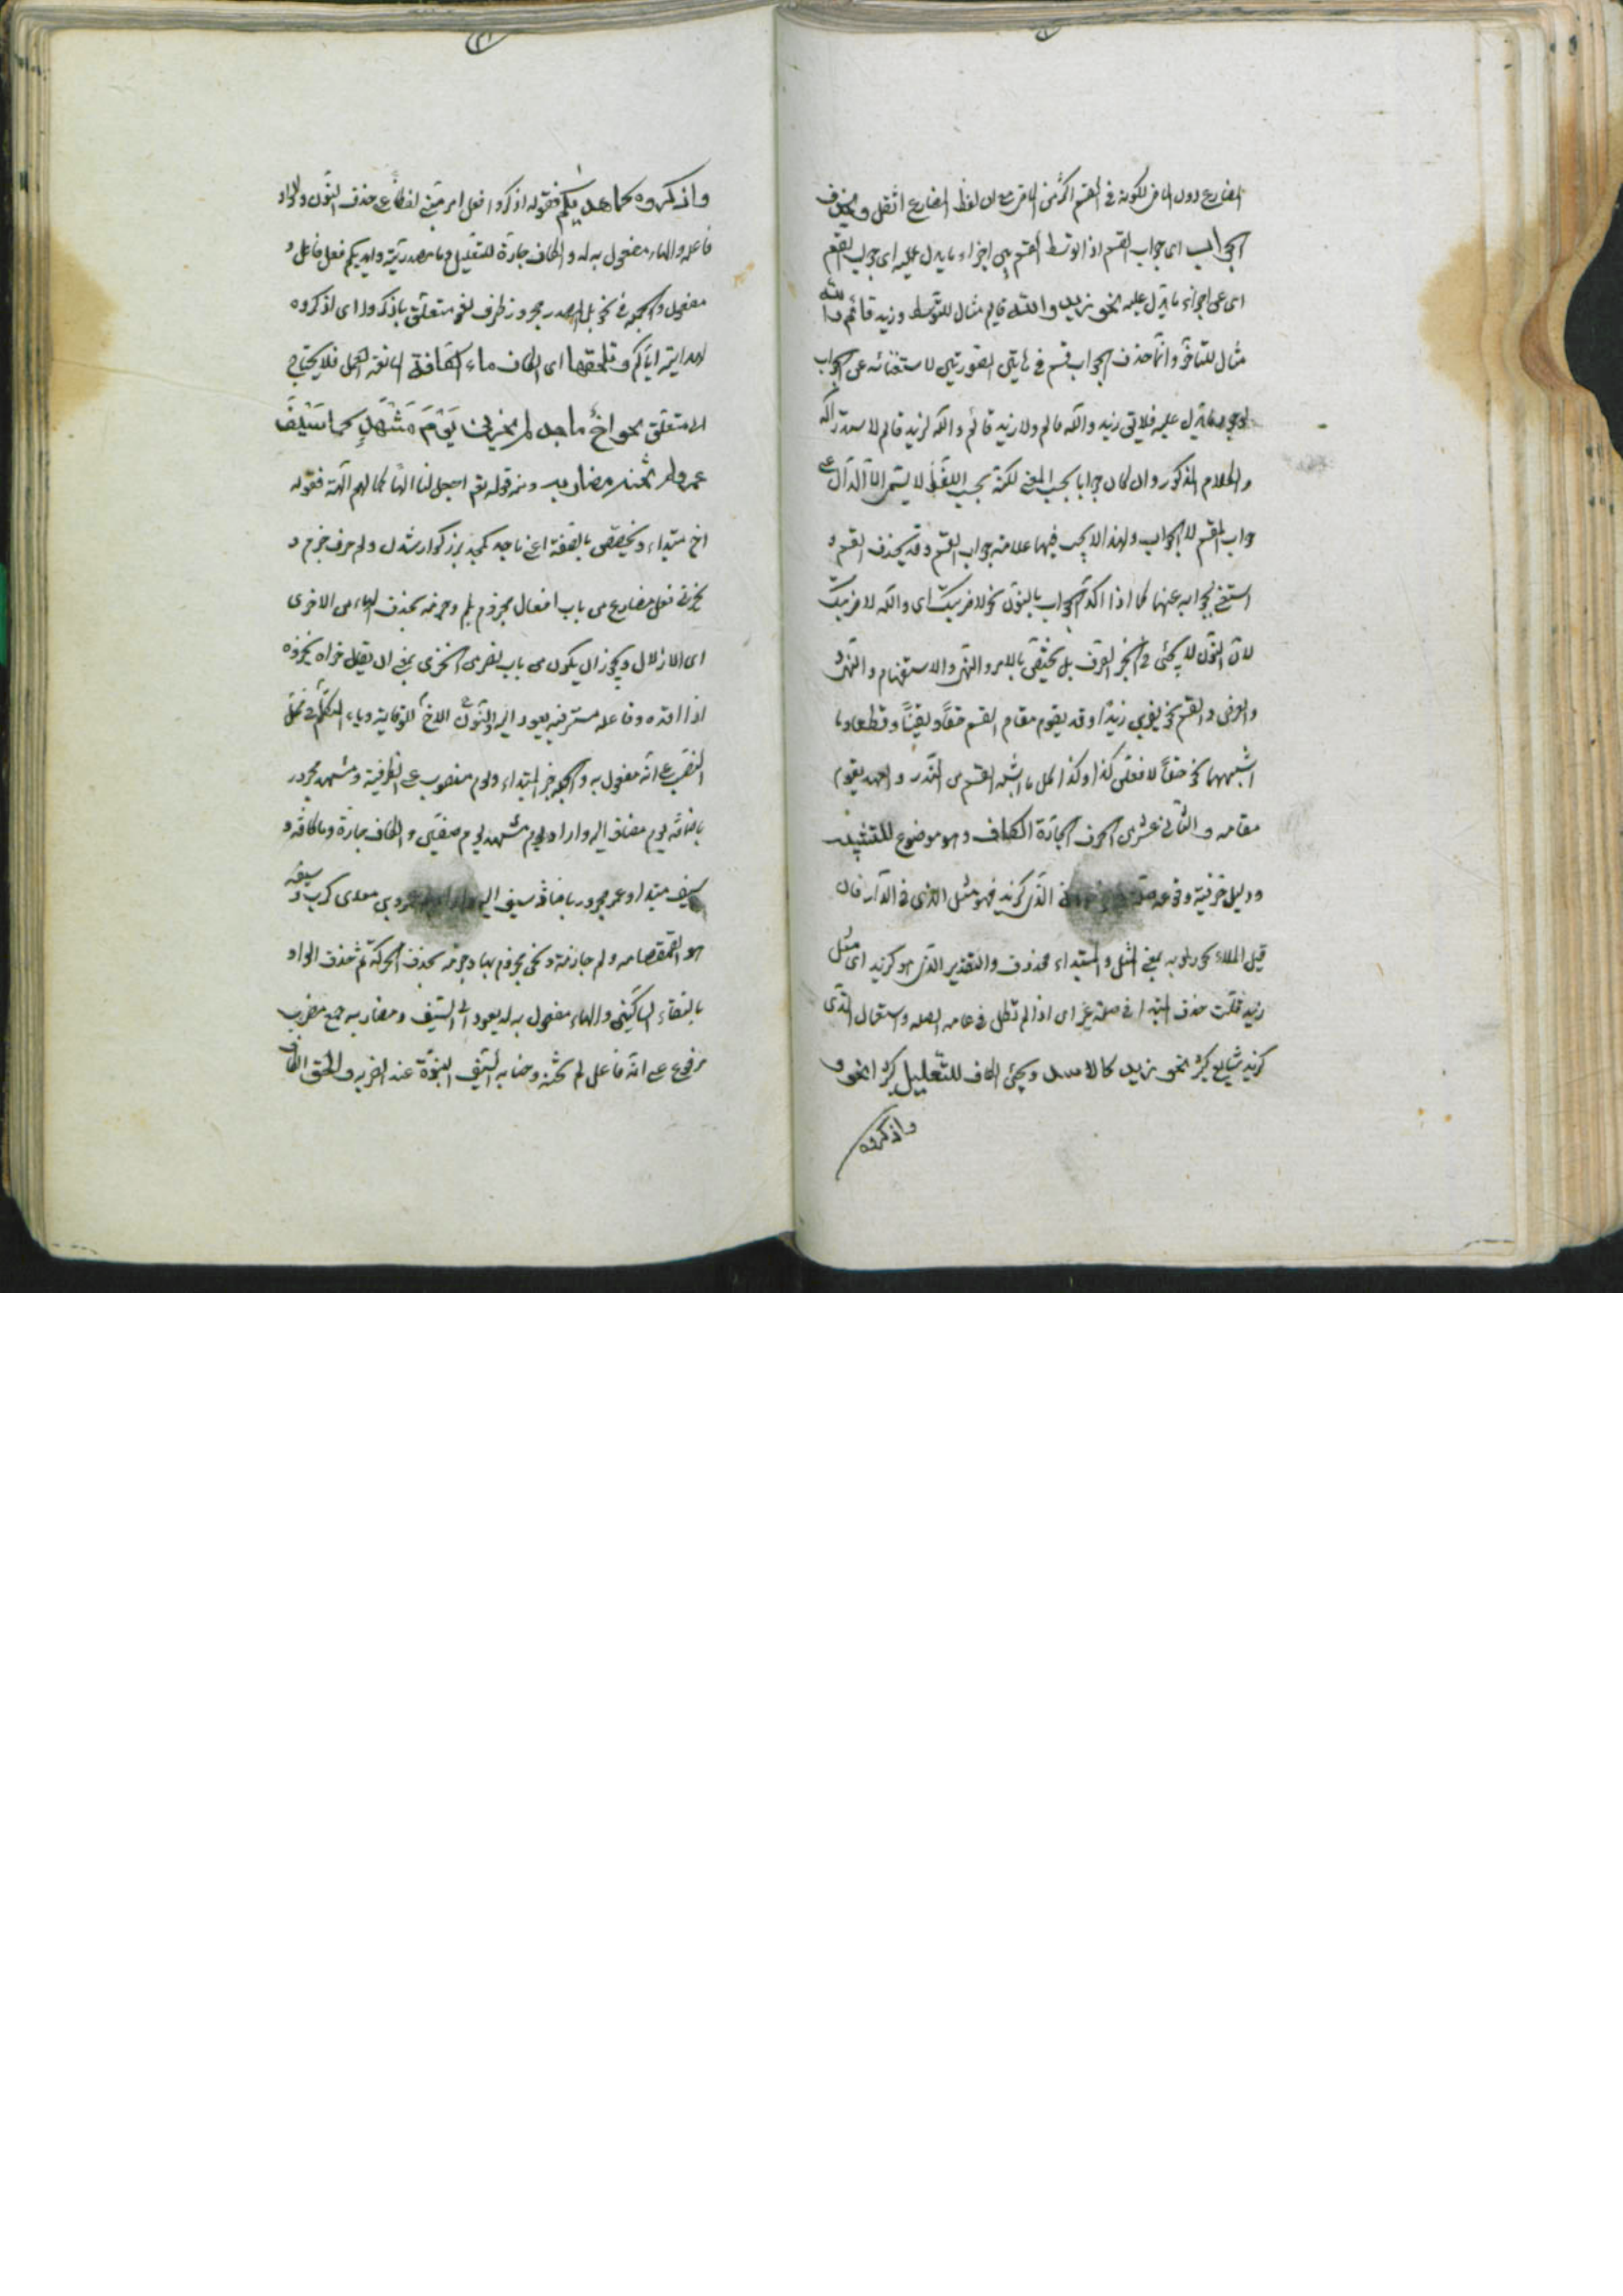 المضارع دون الماضى لكونه فى القسم اكثر من الماضى مع ان لفظ المضارع اثقل ويحذف
الجواب اى جواب القسم اذا توسط القسم بين اجزاء ما يدل عليه اى جواب القسم
اى على اجزاء ما يدل عليه نحو زيد والله قايم مثال للتوسط وزيد قائم والله
مثال للتاخر وانما حذف الجواب فى هاتين الصورتين لاستغنائه عن الجواب
لوجود ما يدل عليه فلا يق زيد والله قائم ولا زيد قائم والله لزيد قائم لاستدراكه
والكلام المذكور وان كان جوابا بحسب المعنى لكنه بحسب اللفظ لا يسمى الا الدال على
جواب القسم لا الجواب ولهذا لا يجب فيها علامة جواب القسم وقد يحذف القسم و
استغنى بجوابه عنها كما اذا اكد الجواب بالنون نحو لاضربنك اى والله لاضربنك
لان النون لا يجئى فى الخبر الصرف بل يختص بالامر والنهى والاستفهام والتمنى و
والعرض والقسم نحو زيدا وقد يقوم مقام القسم حقا ويقينا وقطعا وما
اشبهها نحو حقا لافعلن كذا وكذا كل ما اشبه القسم من النذر والعهد يقوم
مقامه والثانى عشر من الحروف الجارة الكاف وهو موضوع للتشبيه
ودليل حرفيته وقوعه الذى كزيد فهو مثل الذى فى الدار فان
قيل الكاف بمعنى المثل والمبتداء محذوف والتقدير الذى هو كزيد اى مثل
زيد قلت حذف المبتدا فى صلة غير اى اذا لم تطل الصلة واستعمال الذى
كزيد شايع كثير نحو زيد كالاسد ويجئ الكاف للتعليل كثيرا نحو و
واذكروه
واذكروه كما هديكم فقوله اذكروا فعل امر مبنى لفظا على حذف النون والواو
فاعله والهاء مفعول به له والكاف جارة للتعليل وما مصدرية وهديكم فعل فاعل و
مفعول والجملة فى تأويل المصدر مجرور ظرف لغو متعلق باذكروا اى اذكروه
لهدايته اياكم وتلحقها اى الكاف ماء الكافة المانعة العمل فلا يحتاج
الا متعلق نحو اخ ماجد لم يخزنى يوم مشهد كما سيف
عمرو لم تخنه مضاربه ومنه قوله تعم اجعل لنا الها كما لهم آلهة فقوله
اخ مبتداء وتخصص بالصفة اعنى ماجد ولم حرف جزم و
يخزنى فعل مضارع من باب افعال مجزوم بلم وجزمه بحذف الياء من الاخزى
اى الاذلال ويجوز ان يكون من باب نصر من الخزى بمعنى ان يقال خزاه يخزوه
اذا وفاعله مستتر فيه يعود الى الاخ والنون للوقاية وياء المتكلم فى محل
النصب على انه مفعول به والجملة خبر المبتداء ويوم منصوب على الظرفية ومشهد مجرور
باضافة يوم مضاف اليه واراد بيوم مشهد يوم صفين والكاف جارة وما كافة و
سيف مبتدا وعمرو مجرور باضافة سيف اليه معدى كرب وسيفه
هو الصمصامة ولم جازمة وتخن مجزوم بها وجزمه بحذف الحركة ثم حذف الواو
بالتقاء الساكنين والهاء مفعول به له يعود الى السيف ومضاربه جمع مضرب
مرفوع على انه فاعل لم تخنه وخيانة السيف النبوة عند الضربة ولحق الكاف